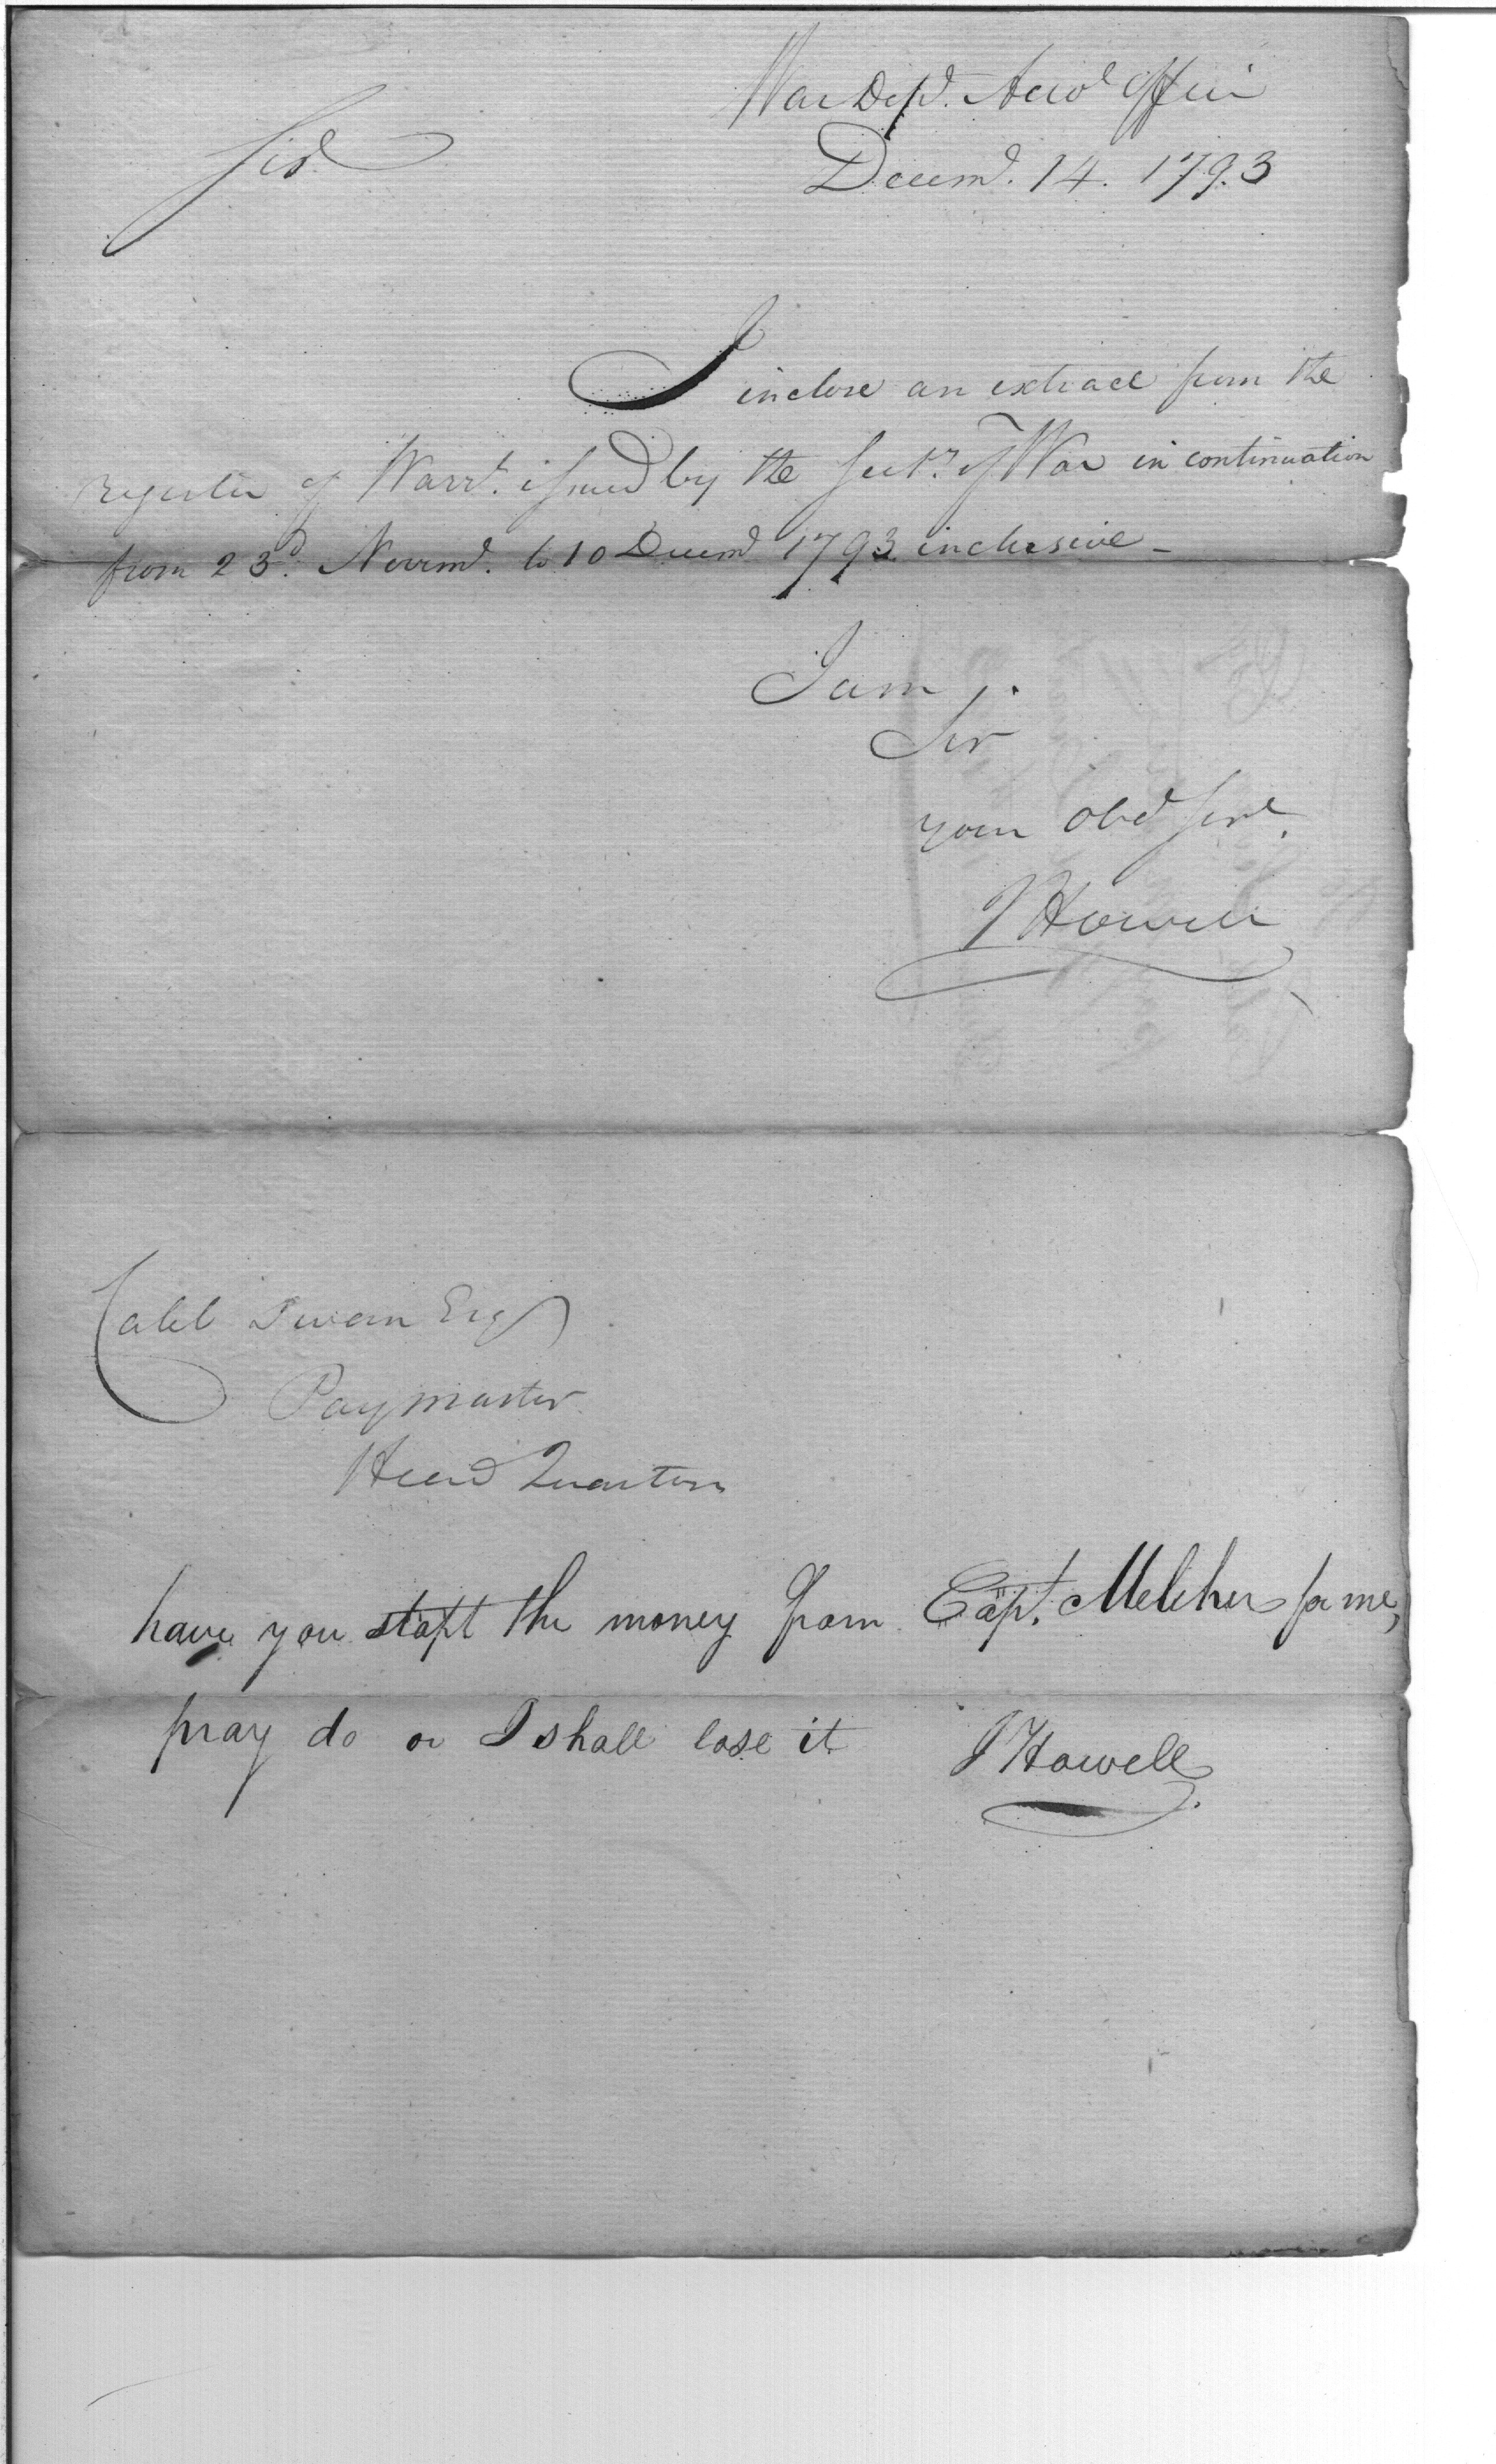 War Dept. Accots Office
Sir
Decemr. 14. 1793
I inclose an extract from the
register of Warrts. issued by the Secty. of War in continuation
from 23d. Novemr. to 10 Decemr 1793 inclusive -
I am,
Sir
your Obdt Servt.
J Howell
Caleb Swan Esqr
Paymaster
Head Quarters
have you stopt the money from Capt. Melcher for me,
pray do or I shall lose it
J Howell